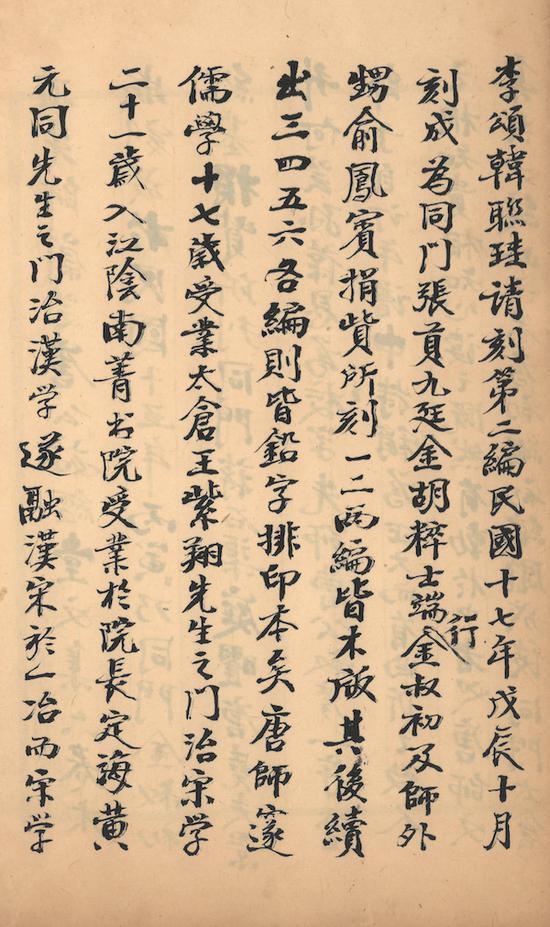 李頌韓聯珪請刻第二編民國十七年戊辰十月
刻成為同門張貢九廷金胡粹士端行金叔初及師外
甥俞鳳賓捐貲所刻一二兩編皆木版其後續
出三四五六各編則皆鉛字排印本矣唐師邃
儒學十七歲受業太倉王紫翔先生之門治宋学
二十一歲入江陰南菁書院受業於院長定海黃
元同先生之門治漢学遂融漢宋於一冶而宋学